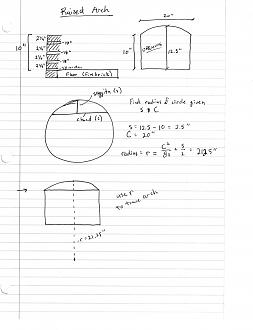 Raised Arch
20"
10"
2½"
2½"
2½"
2½"
Floor (Firebrick)
10"
opening
12.5"
sagitta (s)
chord (c)
Find radius of circle given
s & c
s = 12.5 - 10 = 2.5"
C = 20"
radius = r = C²/8s + s/2 = 21.25"
use r
to trace arch
r = 21.25"